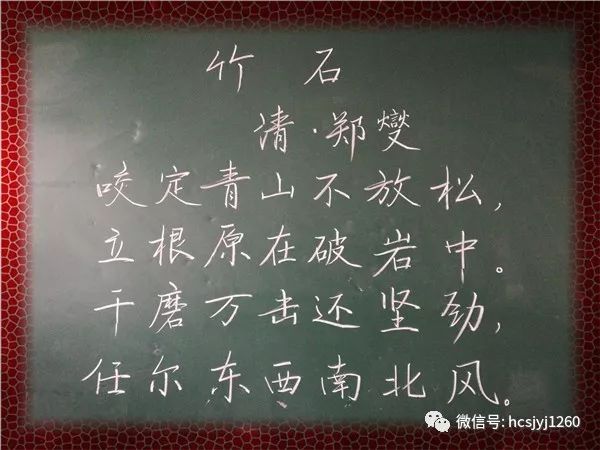 竹 石
清·郑燮
咬定青山不放松，
立根原在破岩中。
千磨万击还坚劲，
任尔东西南北风。
微信号: hcsjyj1260